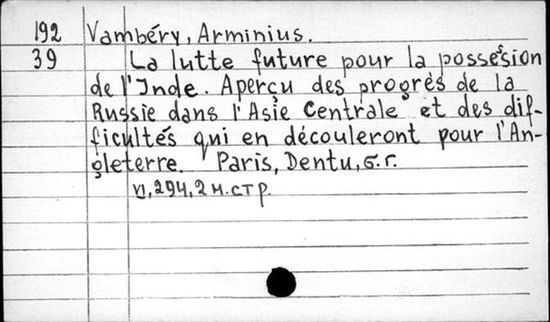 192 Vambéry, Arminius.
39 La lutte future pour la possession
de l'Inde. Aperçu des progrès de la
Russie dans l'Asie Centrale et des dif-
ficultés qui en découleront pour l'An-
gleterre. Paris, Dentu, б.г.
VI, 294, 2 н. стр.